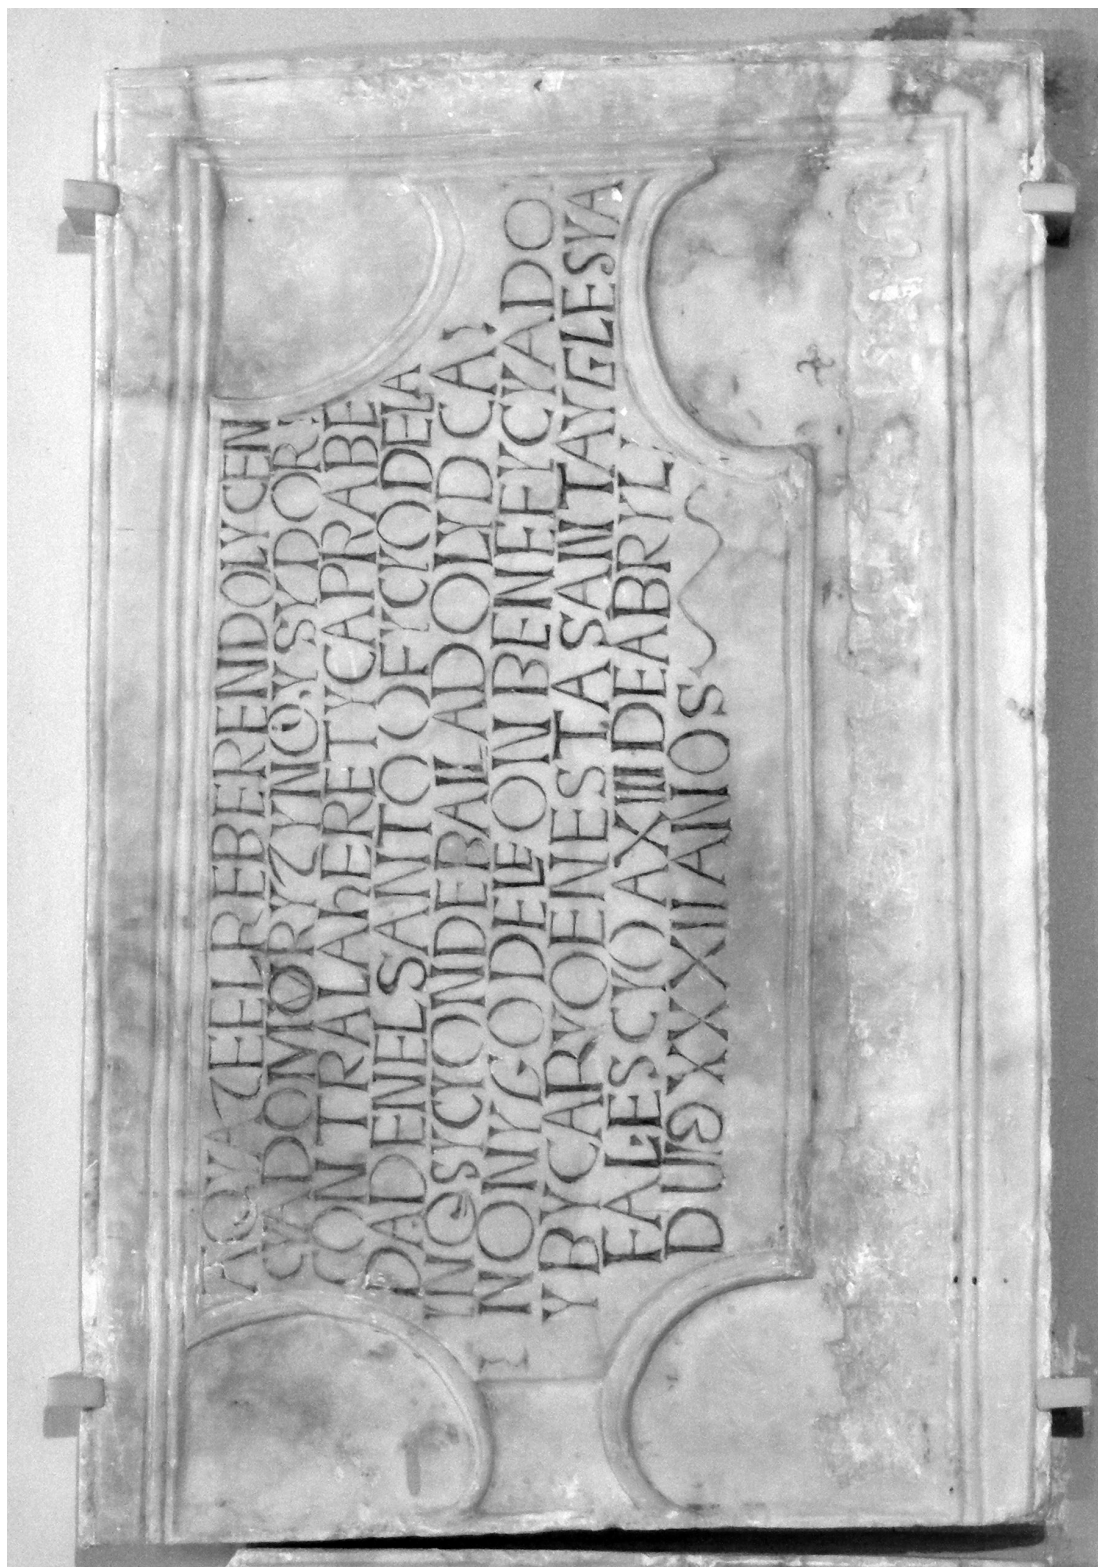 AQYAZE EL REBERENDO LYCEN
CYADO MORYZ YNQYSYDOR
CONTRA LA hERETYCA PRABE
DAD EN EL SANTO OFYCYO DE LA
YNQSYCION DE BALLADOLYD CA
NONYGO DE LEON BENEFYCYADO
Y BYCARYO EN ESTA SANTA YGLESYA
FALESCYO A XIII DE ABRYL
DUDXXXII ANOS